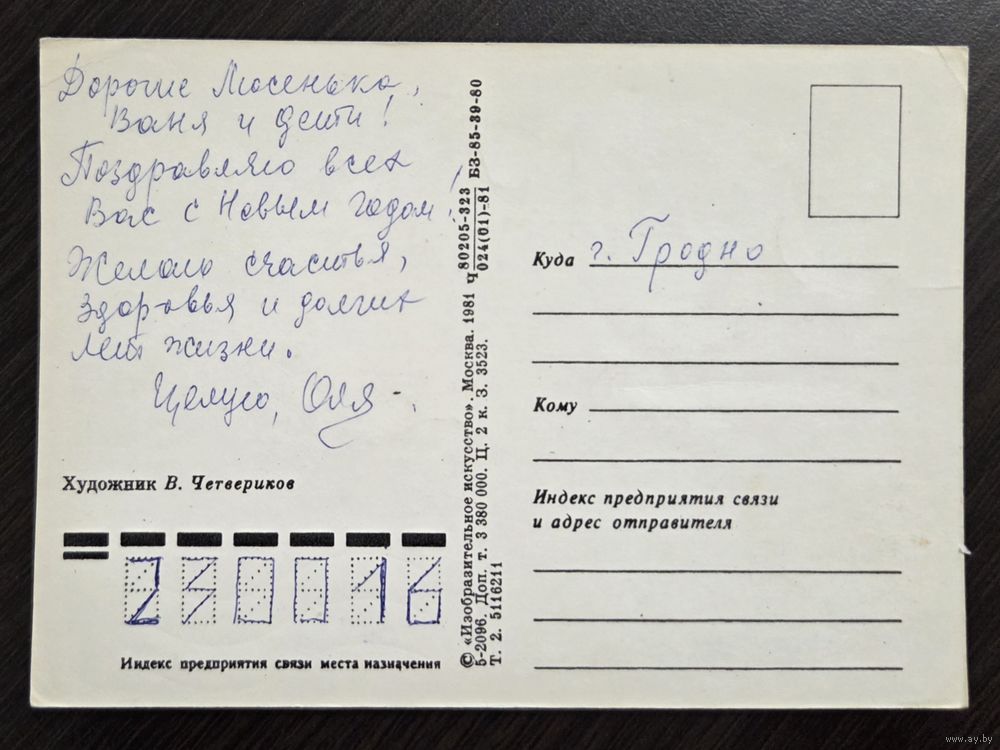 Дорогие Люсенька,
Ваня и дети!
Поздравляю всех
Вас с Новым годом!
Желаю счастья,
здоровья и долгих
лет жизни.
Целую, Оля.
Художник В. Четвериков
230016
Индекс предприятия связи места назначения
© «Изобразительное искусство». Москва. 1981 Ч 80205-323 БЗ-85-39-80
024(01)-81
5-2096. Доп. т. 3 380 000. Ц. 2 к. З. 3523.
Т. 2. 5116211
Куда г. Гродно
Кому
Индекс предприятия связи
и адрес отправителя
www.ay.by